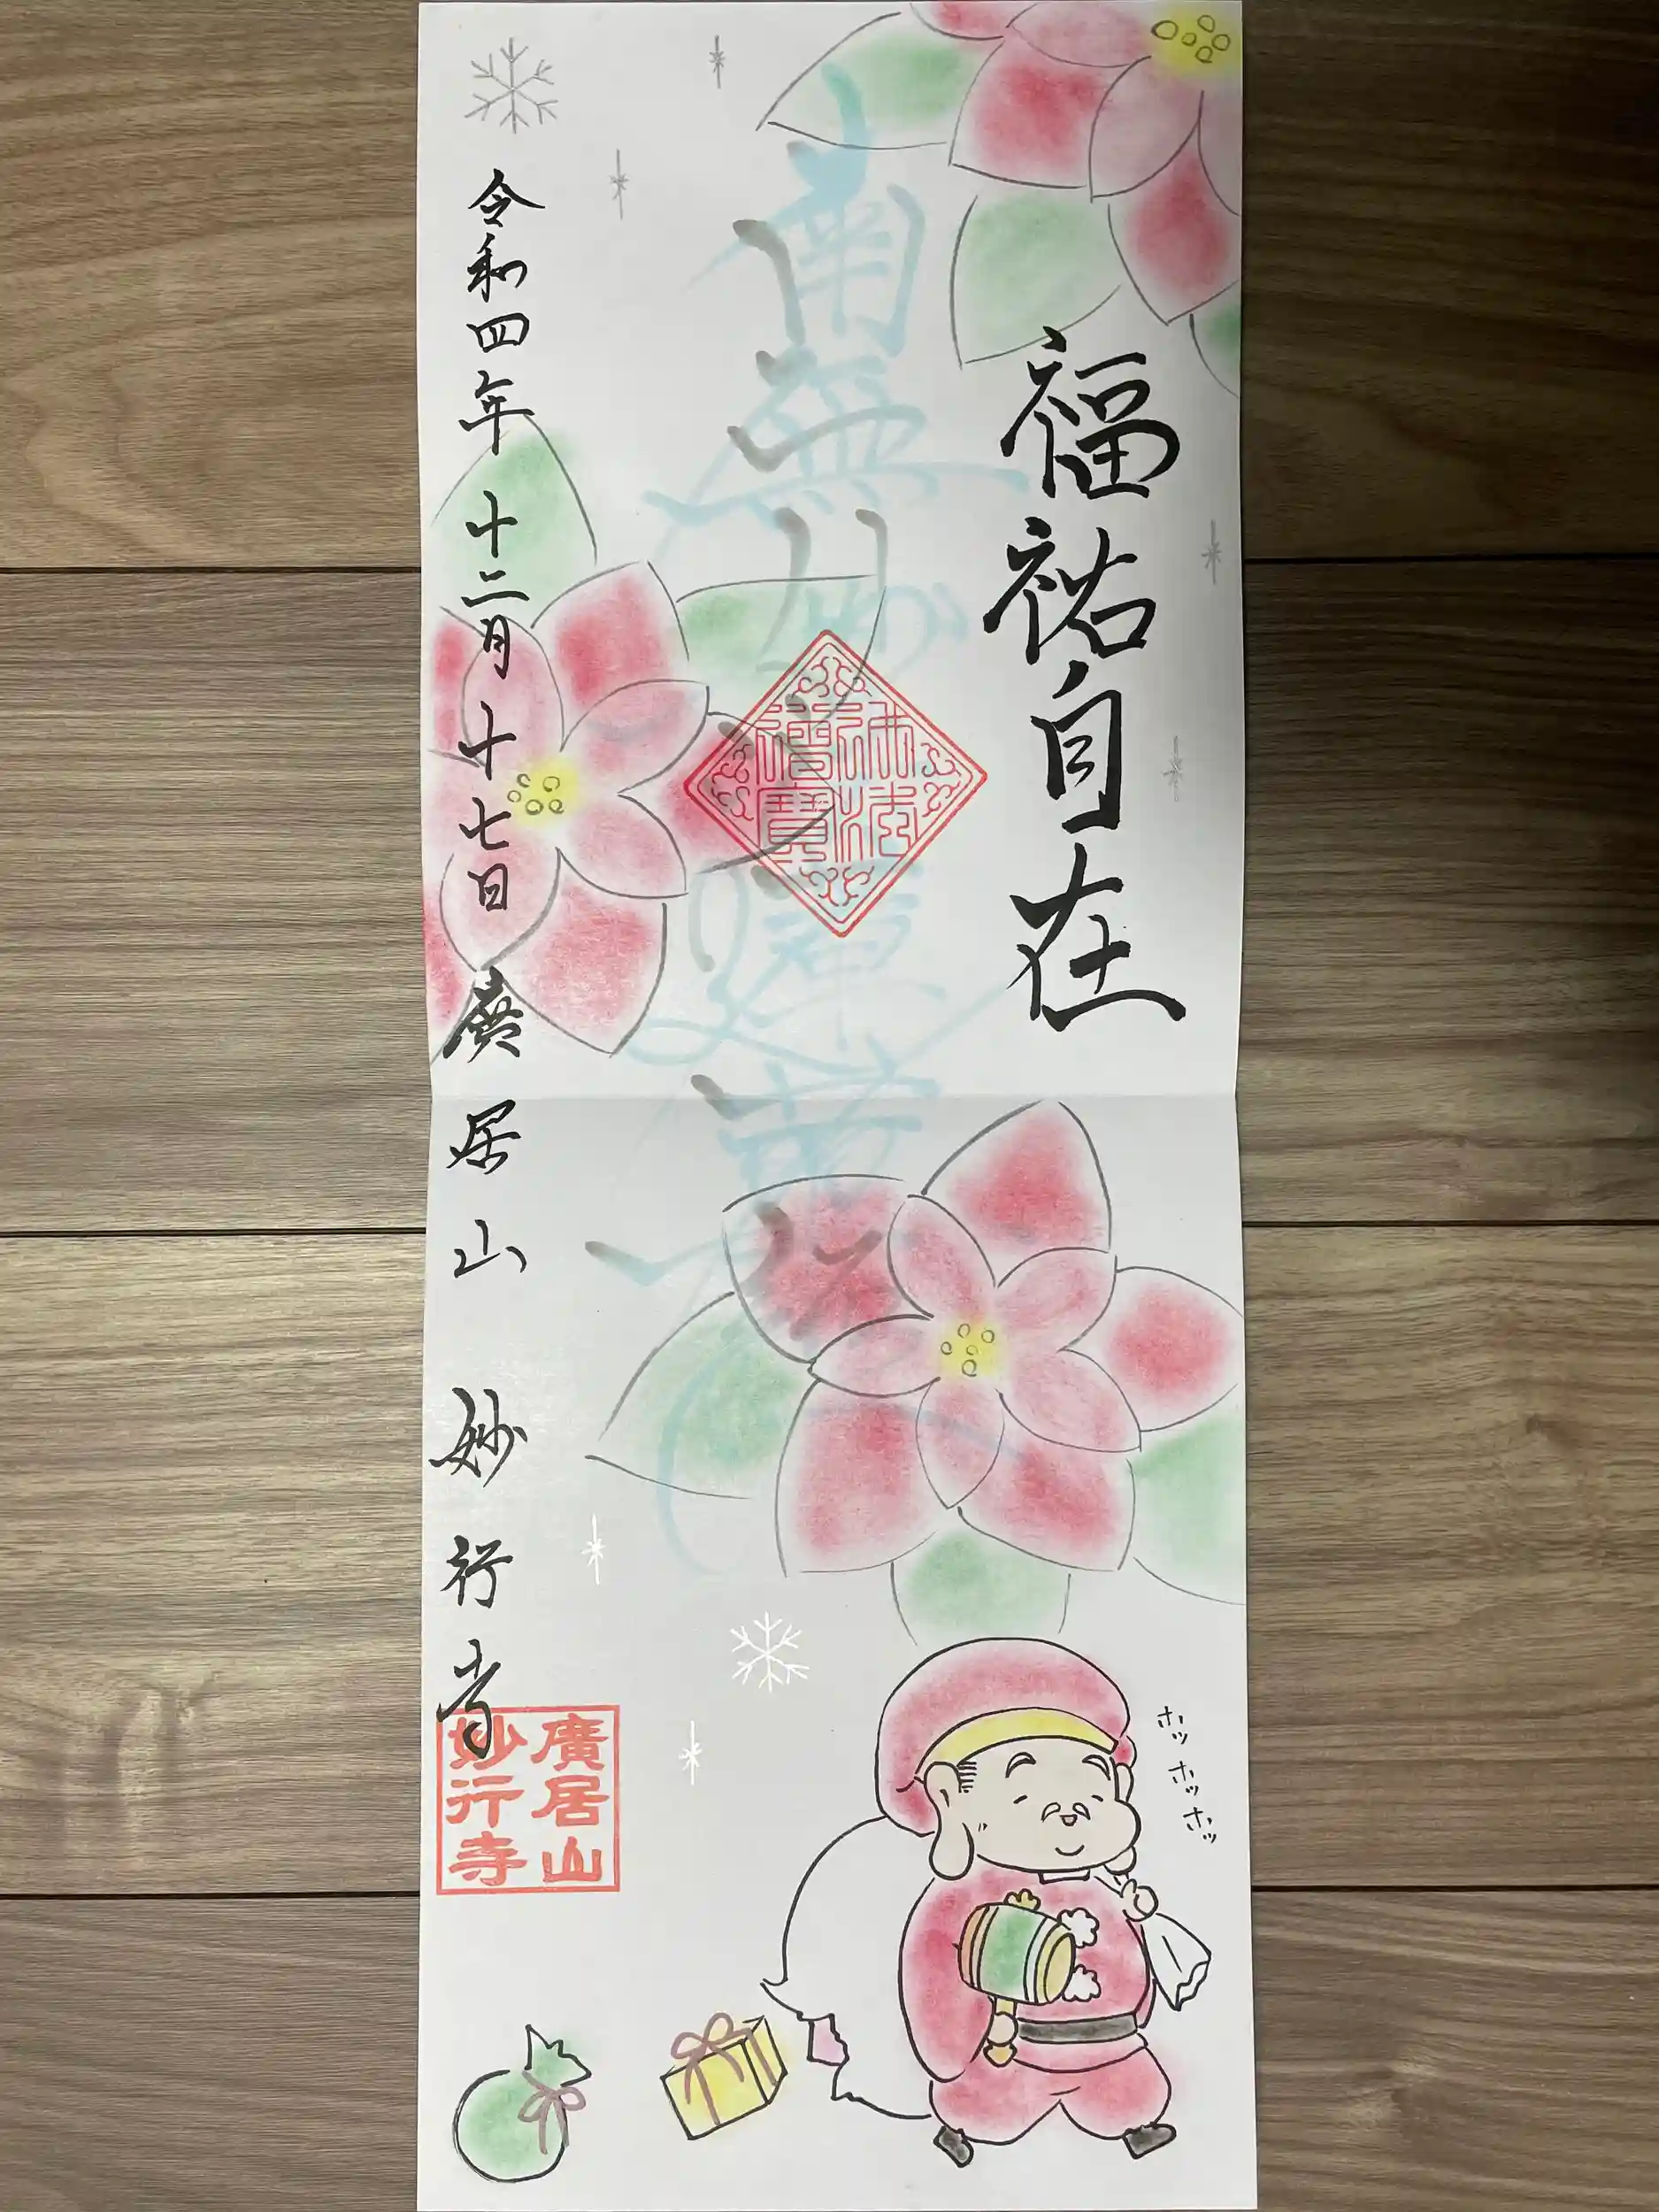 福祐自在
南無妙法蓮華経
佛法
僧寳
令和四年 十二月 十七日 廣居山 妙行寺
廣居山
妙行寺
ホッ
ホッ
ホッ